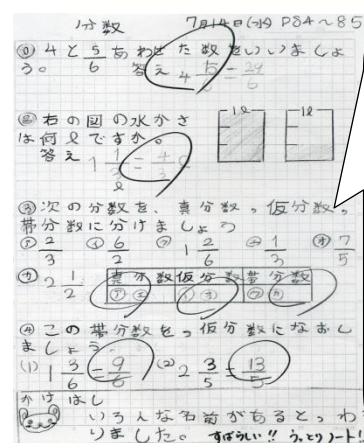 分数 7月14日(水) P84~85
① 4と5/6あわせた数をいいましょ
う。 答え 4 5/6 = 29/6
② 右の図の水かさ
は何ℓですか。
1ℓ 1ℓ
答え 1 1/3 = 4/3 ℓ
③ 次の分数を、真分数、仮分数、
帯分数に分けましょう
㋐ 2/3 ㋑ 6/2 ㋒ 1 2/6 ㋓ 1/3 ㋔ 7/5
㋕ 2 1/2 真分数 仮分数 帯分数
㋐㋓ ㋑㋔ ㋒㋕
④ この帯分数を、仮分数になおし
ましょう。
(1) 1 3/6 = 9/6 (2) 2 3/5 = 13/5
いろんな名前があると、わ
りました。 すばらしい!! うっとりノート